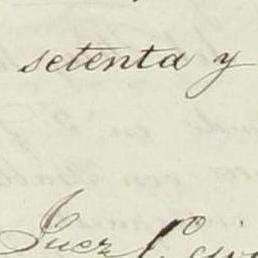 setenta y
Juez